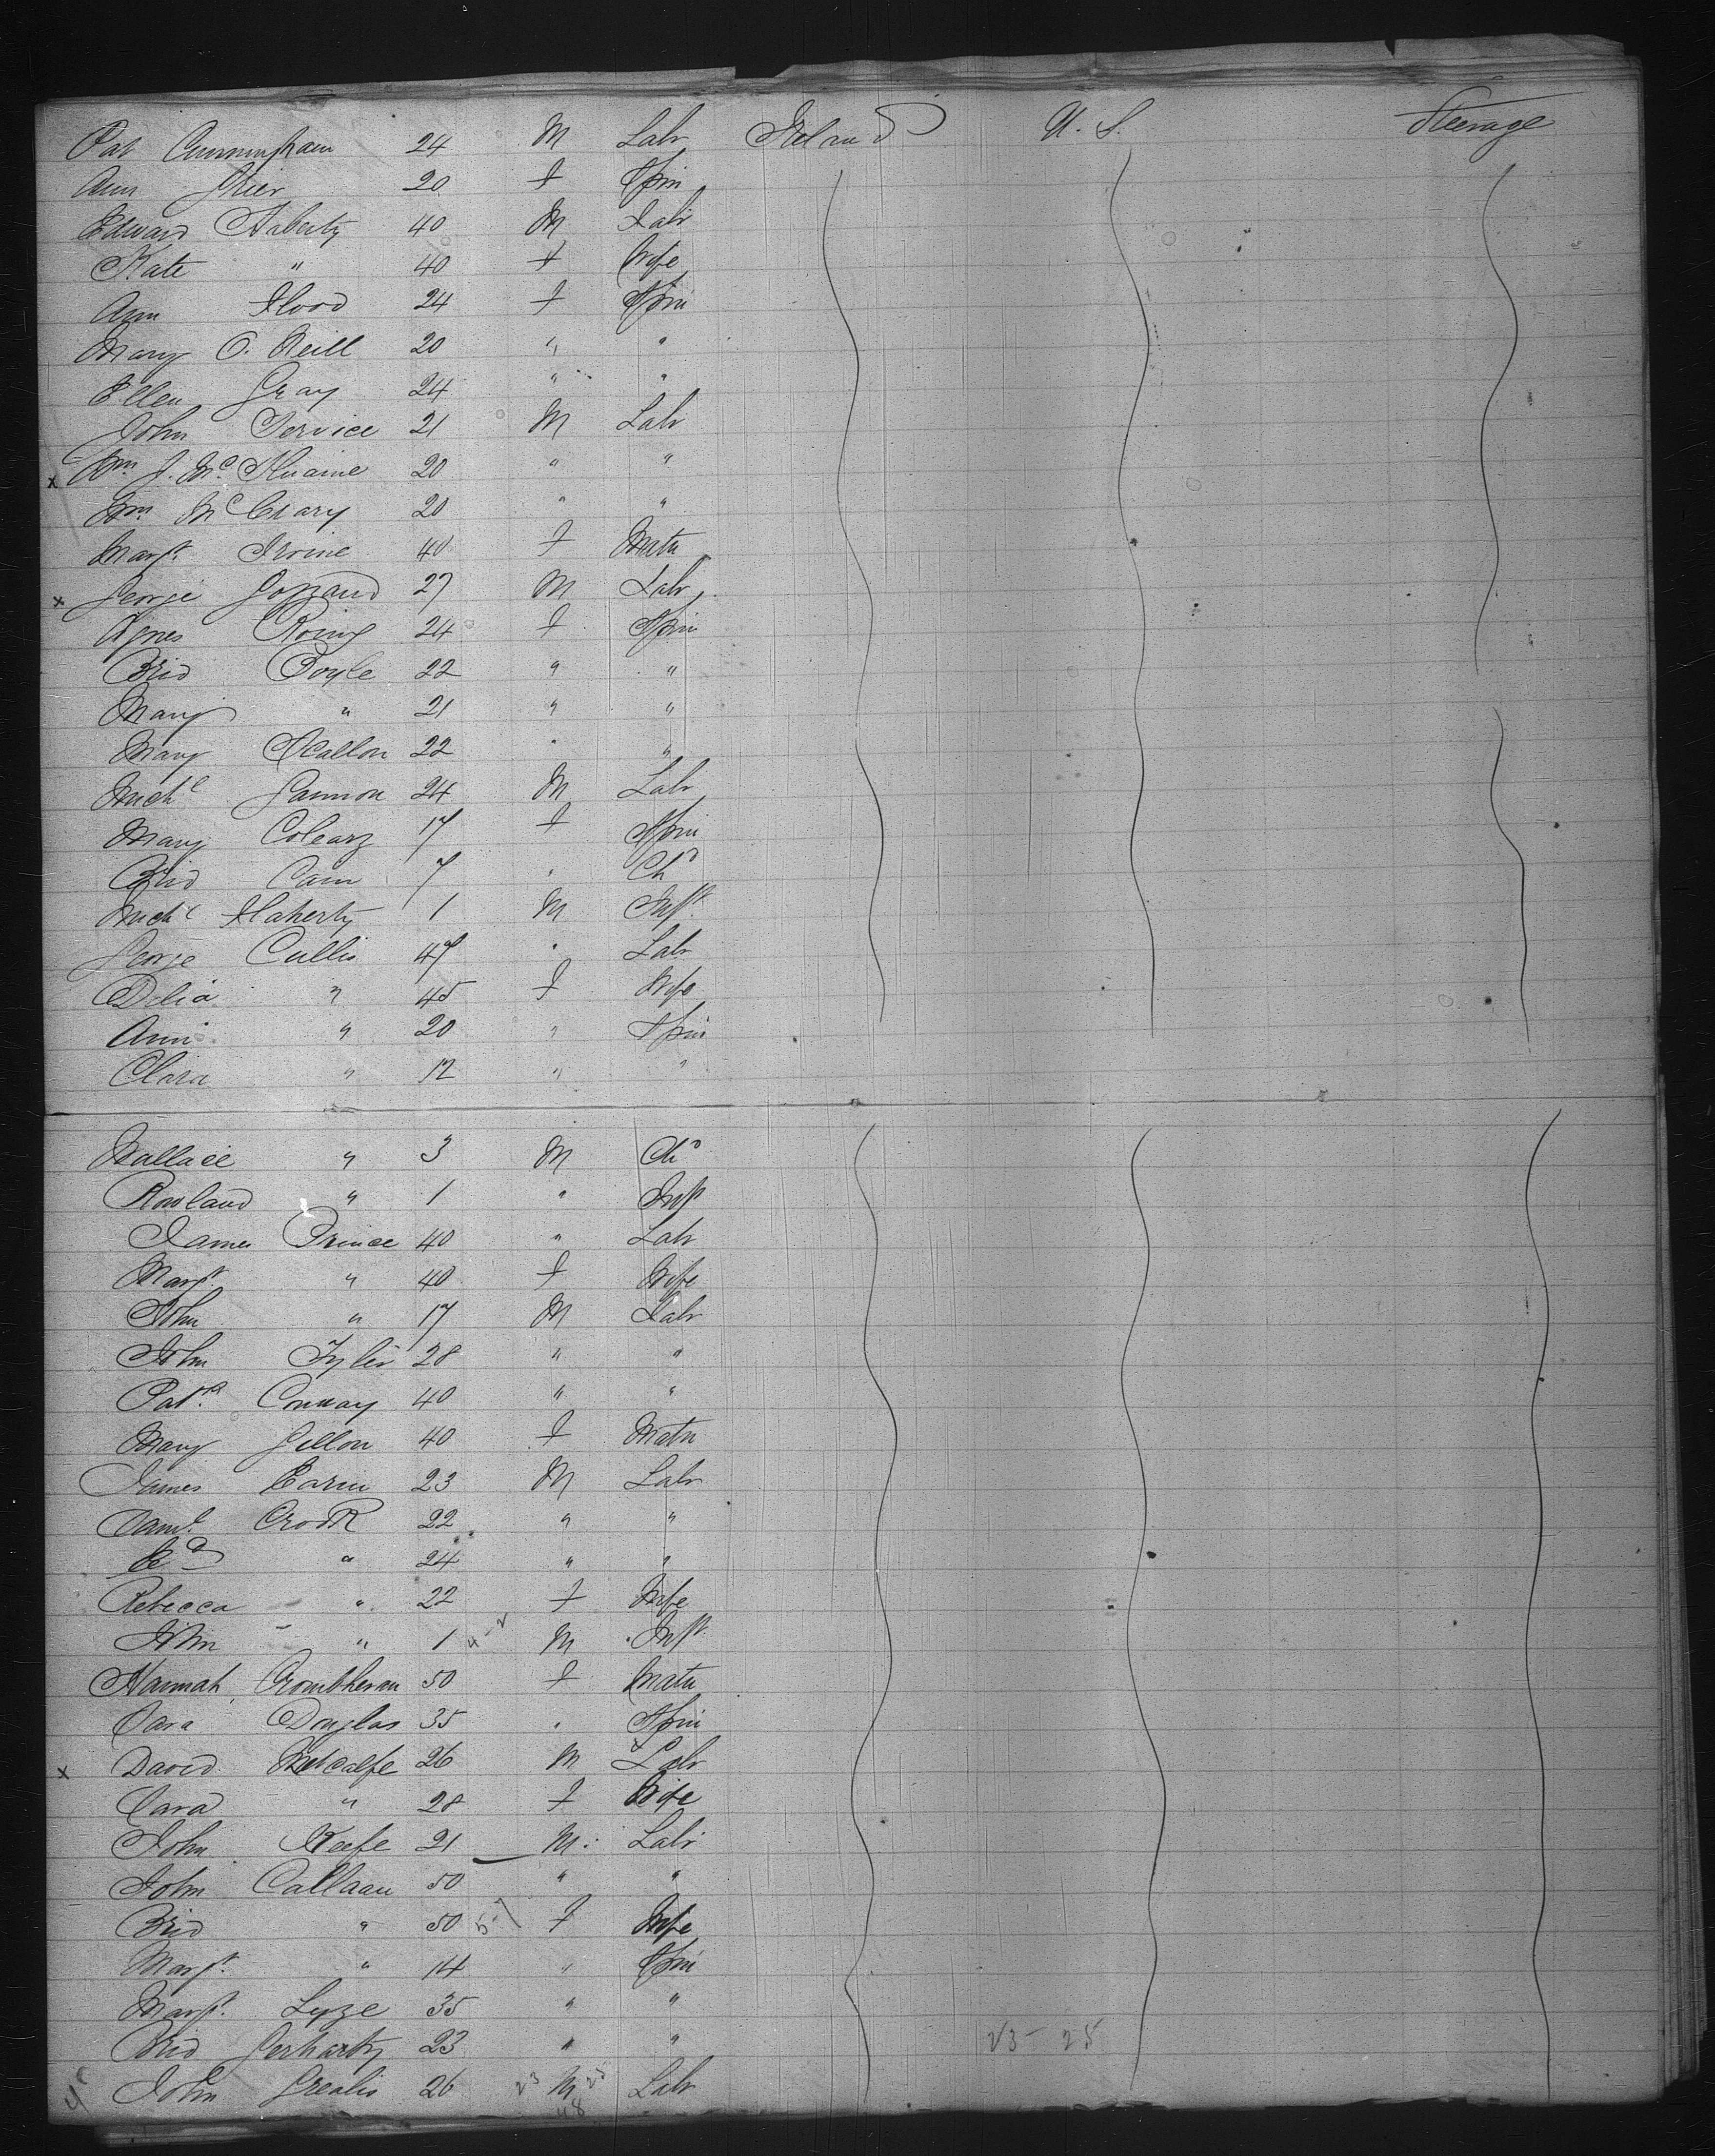 Pat Cunningham 24 M Labr Ireland U. S. Steerage
Ann Grier 20 F Spin
Edward 40 M Labr
Kate " 40 F Wife
Ann Flood 24 F Spin
Mary O. Neill 20 " "
Ellen Gray 24 " "
John Service 21 M Labr
x Wm J. Mc 20 " "
Wm McCrary 20 " "
Margt Irvine 40 F Matn
x George 27 M Labr
Agnes 24 F Spin
Brid Boyle 22 " "
Mary " 21 " "
Mary Scallon 22 " "
Michl Gannon 24 M Labr
Mary 17 F Spin
Brid Cain 7 " Chd
Michl Flaherty 1 M Inft
George Cullis 47 " Labr
Delia " 45 F Wife
Ann " 20 " Spin
Clara " 12 " "
Wallace " 3 M Chd
Rowland " 1 " Inft
James Prince 40 " Labr
Margt " 40 F Wife
John " 17 M Labr
John Tyler 28 " "
Patk Conway 40 " "
Mary Gillon 40 F Matn
James 23 M Labr
Saml Crook 22 " "
Ed " 24 " "
Rebecca " 22 F Wife
John " 1 4-2 M Inft
Hannah 50 F Matn
Sara Douglas 35 " Spin
x David Metcalfe 26 M Labr
Sara " 28 F Wife
John Keefe 21 M Labr
John Callaan 50 " "
Brid " 50 5-7 F Wife
Margt " 14 " Spin
Margt Lyze 35 " "
Brid Gerharty 23 " " 23-25
John Grealis 26 23 M 25 Labr
48